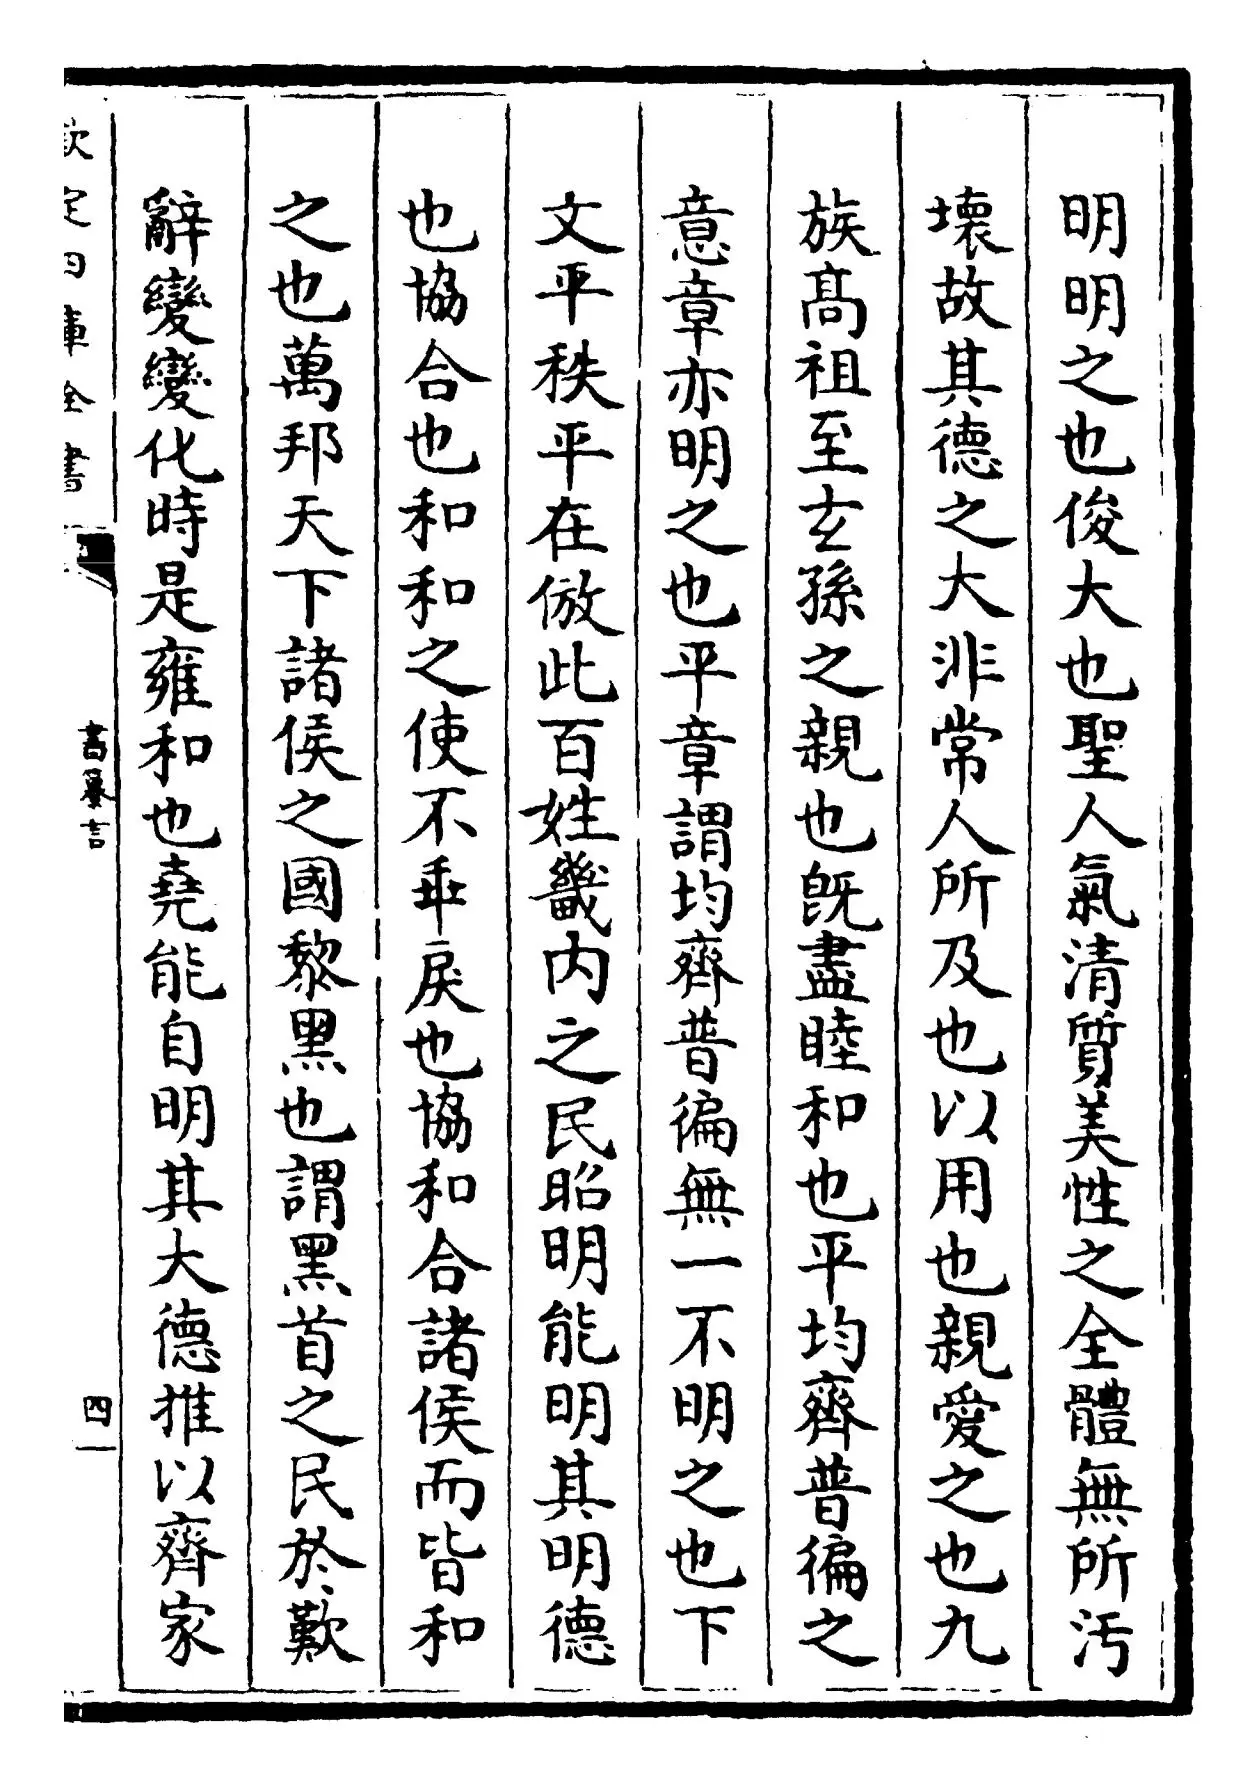 明明之也俊大也聖人氣清質美性之全體無所汚
壞故其德之大非常人所及也以用也親愛之也九
族髙祖至玄孫之親也既盡睦和也平均齊普徧之
意章亦明之也平章謂均齊普徧無一不明之也下
文平秩平在倣此百姓畿内之民昭明能明其明德
也協合也和和之使不乖戾也協和合諸侯而皆和
之也萬邦天下諸侯之國黎黒也謂黒首之民於歎
辭變變化時是雍和也堯能自明其大德推以齊家
欽定四庫全書
書纂言
四